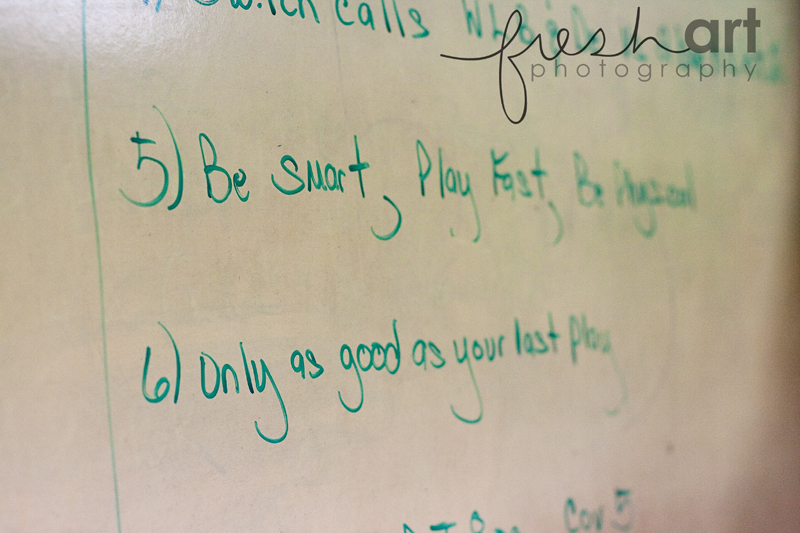 Switch calls
fresh art
photography
5) Be smart, Play Fast, Be Physical
6) Only as good as your last play
Cov 5